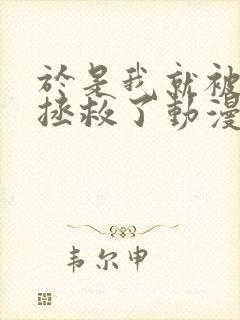 於是我就被
拯救了動漫
韦尔申